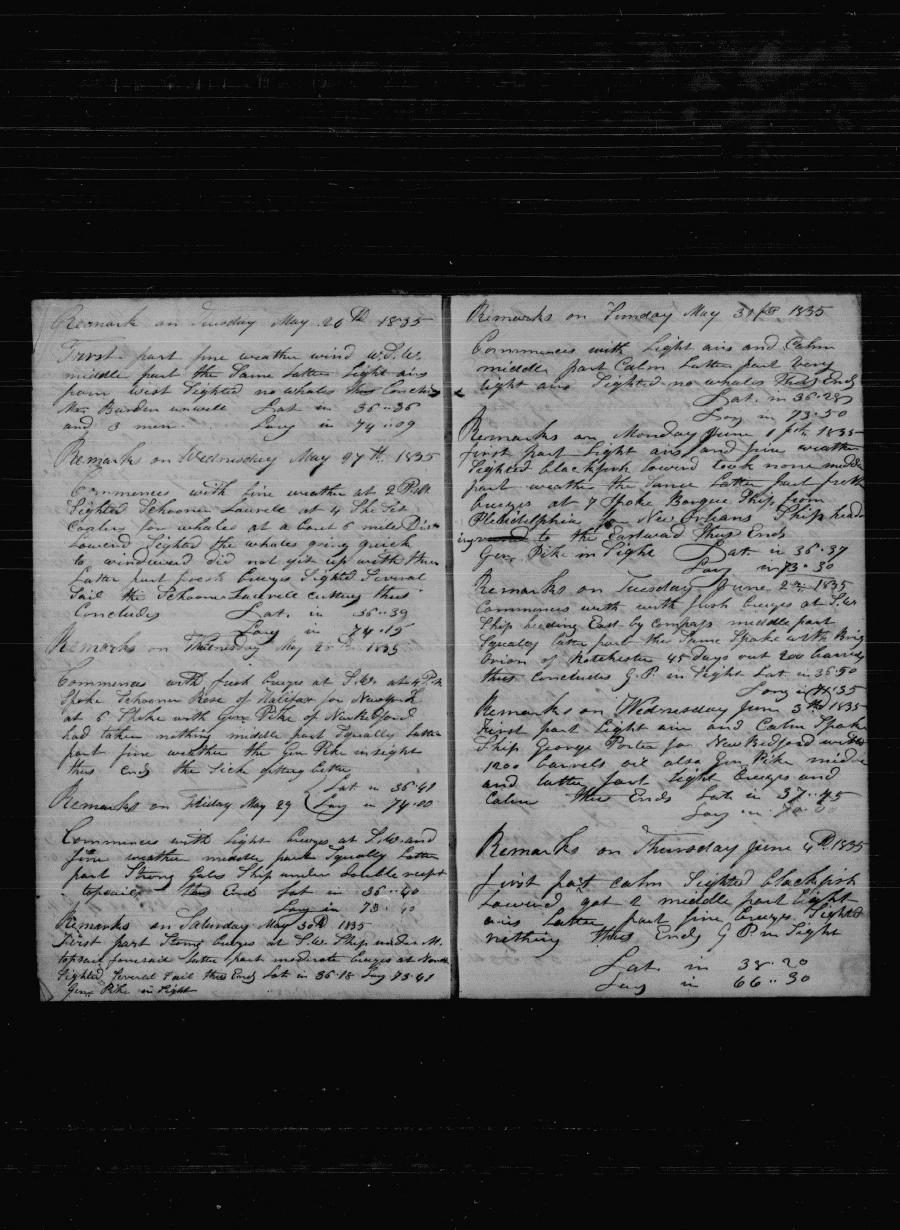 Remark on Tuesday May 26th 1835
First part fine weather wind W.S.W.
middle part the Same latter Light airs
from West Sighted no whales thus Concludes
Mr Burden unwell Lat in 36..36
and 3 men Long in 74..09
Remarks on Wednesday May 27th 1835
Commences with fine weather at 2 PM
Sighted Schooner Laurell at 4 She Set
for whales at a bout 6 miles Dist
Lowerd Sighted the whales going quick
to windward did not git up with them
Latter part fresh breezes Sighted Several
Sail the Schooner Laurell cutting thus
Concludes Lat. in 36..39
Long in 74.15
Remarks on Thursday May 28th 1835
Commences with fresh breezes at S.W. at 4 PM
Spoke Schooner Rose of Halifax for Newyork
at 6 Spoke with Gen Pike of NewBedford
had taken nothing middle part Squally latter
part fine weather the Gen Pike in sight
thus Ends the Sick getting better
Lat in 36.41
Remarks on Friday May 29 Long in 74.00
Commences with light breezes at S.W. and
fine weather middle part Squally latter
part Strong Gales Ship under double reeft
topsails thus Ends Lat in 36..40
Long in 73.40
Remarks on Saturday May 30th 1835
First part Strong breezes at S.W. Ship under M.
topsail foresail latter part moderate breezes at
Sighted Several Sail thus Ends Lat in 36.18 Long 73.41
Gen. Pike in Sight
Remarks on Sunday May 31st 1835
Commences with Light airs and Calm
middle part Calm Latter part very
light airs Sighted no whales Thus Ends
Lat. in 36.28
Long in 73.50
Remarks on Monday June 1st 1835
first part Light airs and fine weather
Sighted blackfish lowerd took none middle
part weather the Same Latter part fresh
breezes at 7 Spoke Barque Ship from
Pleladelphia for New Orleans Ship head
ing to the Eastward thus Ends
Gen. Pike in Sight Lat in 36.37
Long in 73.30
Remarks on Tuesday June 2nd 1835
Commences with with fresh breezes at S.W
Ship heading East by Compass middle part
Squaley latter part the Same Spoke with Brig
Orion of Rotchester 45 days out 200 barrels
thus concludes G.P. in Sight Lat in 36.50
Long in 71.35
Remarks on Wednesday June 3rd 1835
First part Light airs and Calm Spoke
Ship George Porter for New Bedford with
1200 barrels oil also Gen Pike middle
and latter part light breezes and
Calm thus Ends Lat in 37..45
Long in 70.00
Remarks on Thursday June 4th 1835
First part calm Sighted blackfish
Lowered got 2 middle part light
airs latter part fine breezes Sighted
nothing thus Ends G P in Sight
Lat in 38.20
Long in 66..30